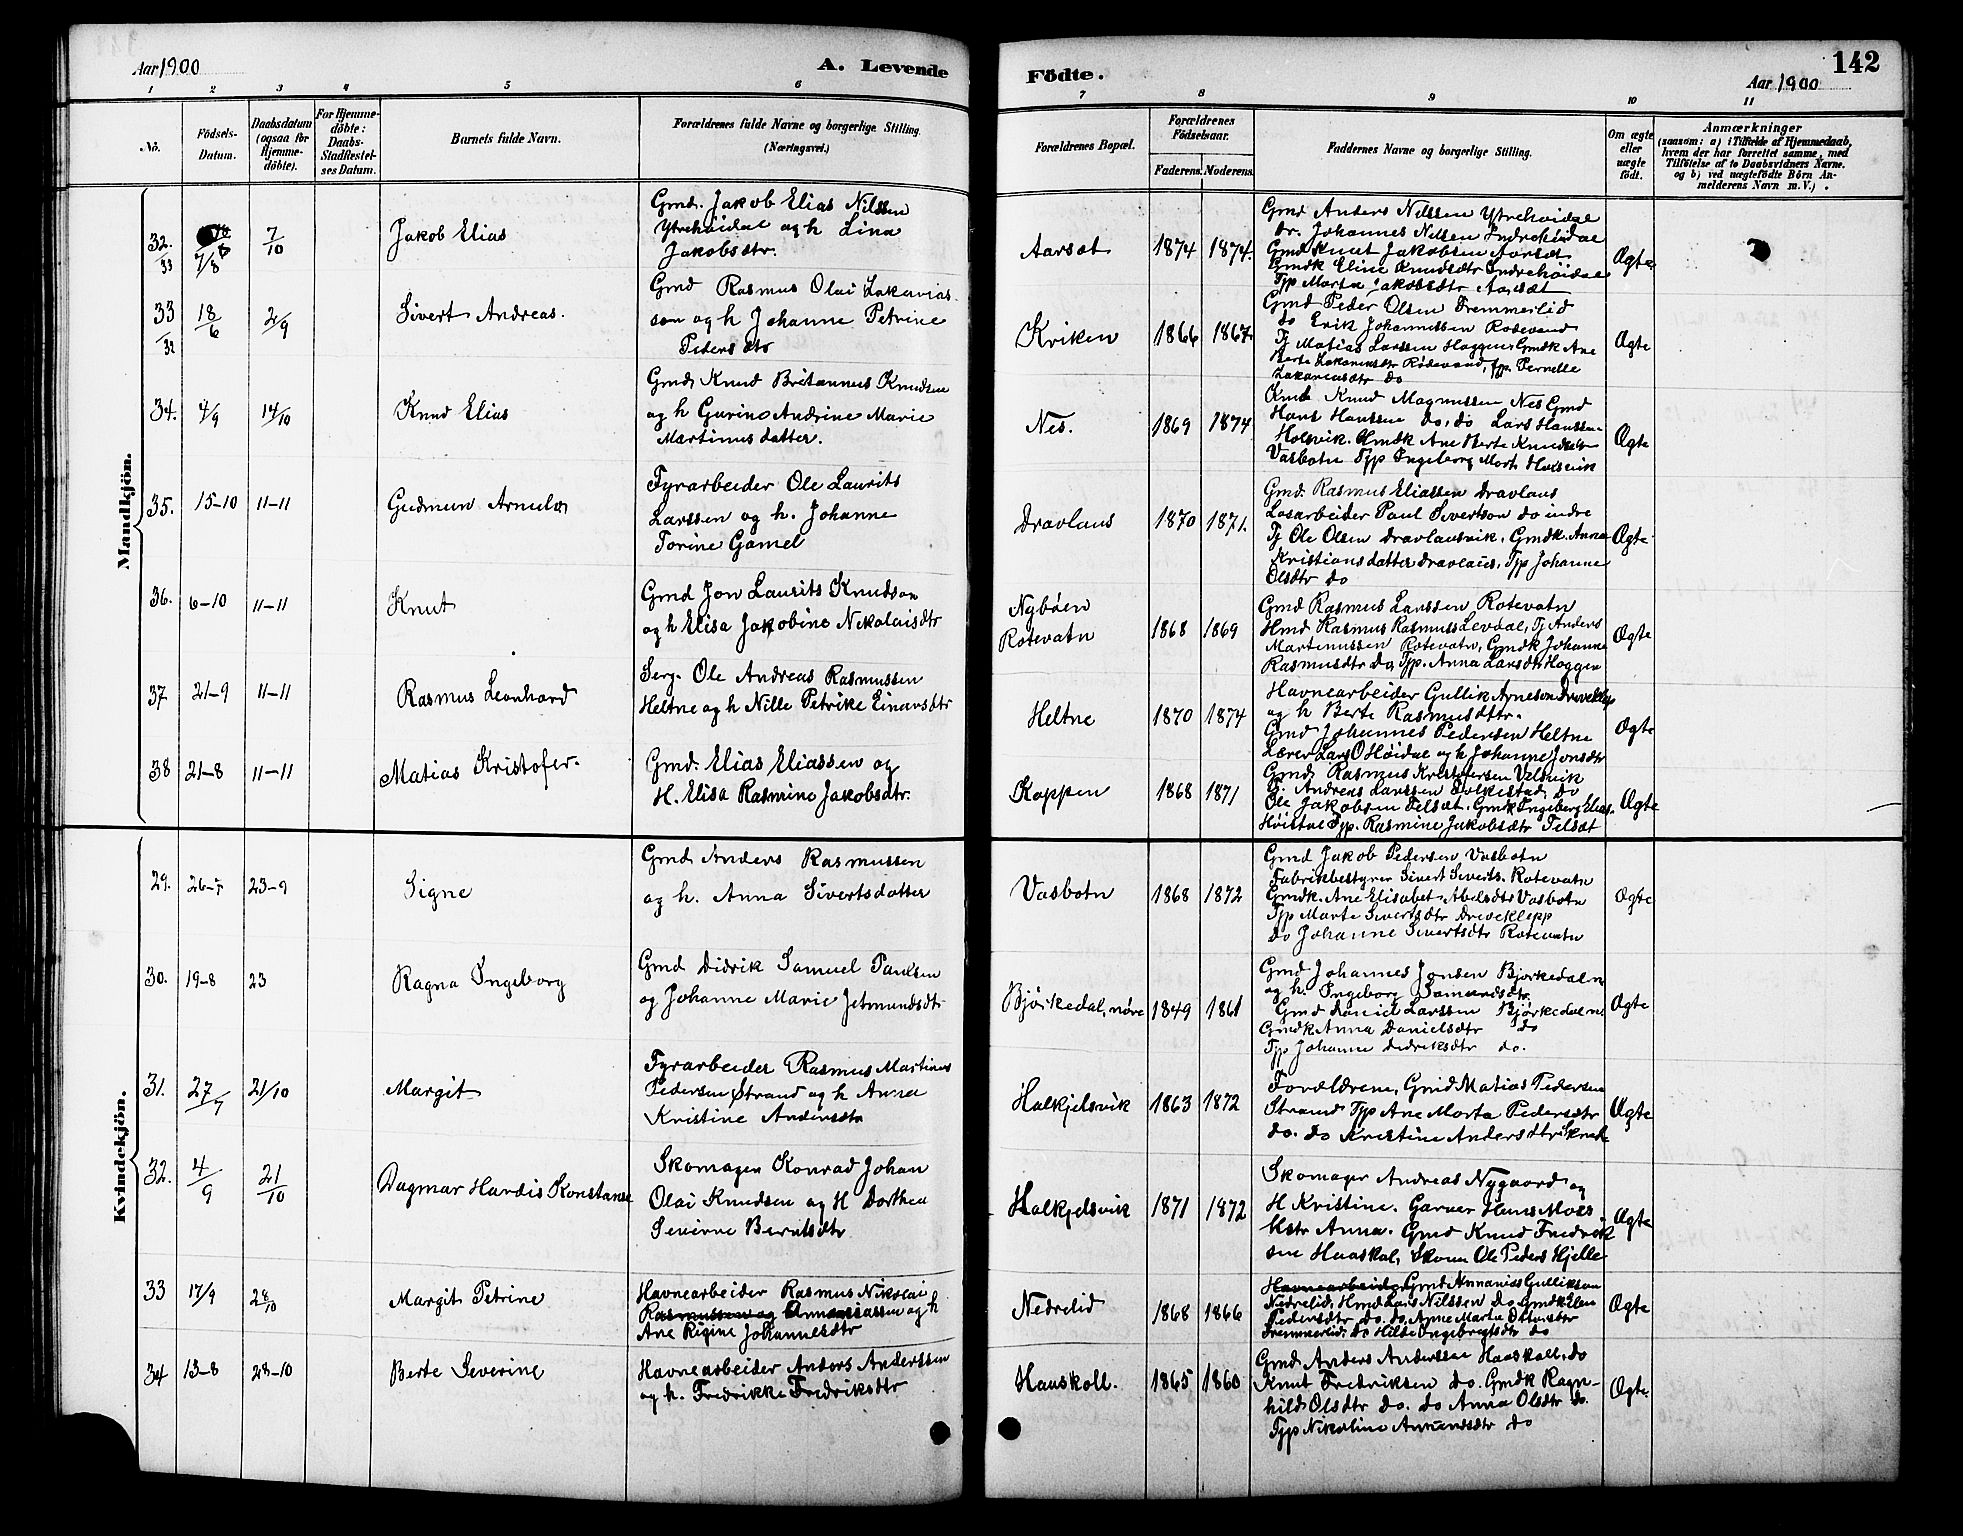 Aar 1900
A. Levende
Födte.
142
Aar 1900
1 2 3 4 5 6 7 8 9 10 11
No.
Födsels-Datum.
Daabsdatum (ogsaa for Hjemme-döbte).
For Hjemme-döbte: Daabs-Stadfæstel-ses Datum.
Barnets fulde Navn.
Forældrenes fulde Navne og borgerlige Stilling.
(Næringsvei.)
Forældrenes Bopæl.
Forældrenes Födselsaar.
Faderens. Moderens.
Faddernes Navne og borgerlige Stilling.
Om ægte eller uægte födt.
Anmærkninger
(saasom: a) i Tilfælde af Hjemmedaab, hvem der har forrettet samme, med Tilföielse af to Daabsvidners Navne. og b) ved uægtefödte Börn An-melderens Navn m. V.).
Mandkjön.
32. 33
7/8
7/10
Jakob Elias
Gmd. Jakob Elias Nilssen
Ytrehöidal og h Lina
Jakobsdtr.
Aarsæt
1874 1874.
Gmd Anders Nilssen Ytrehöidal
Dr. Johannes Nilsen Indrehöidal
Gmd Knut Jakobsen Aarsæt
Gmdk Eline Knudsdtr Indrehöidal
Tjp Marta Jakobsdtr Aarsæt
Ægte
33 32
18/6
2/9
Sivert Andreas.
Gmd Rasmus Olai Zakarias
son og h Johanne Petrine
Peders dtr
Kriken
1866 1867.
Gmd Peder Olsen Fremmerlid
do Erik Johannessen Rotevand
Tj Matias Larssen Hoggen Gmdk Ane
Berte Zakariasdtr Rödevand, tjp. Pernelle
Zakariasdtr do
Ægte
34.
4/9
14/10
Knud Elias
Gmd Knud Britannus Knudsen
og h Gurine Andrine Marie
Martinus datter.
Nes.
1869 1874
Kmd Knud Magnussen Nes Gmd
Hans Hanssen do, do Lars Hanssen
Holsvik. Gmdk Ane Berte Knudsdtr
Vasbotn Tjp Ingeborg Mort Holsvik
Ægte
35.
15-10
11-11
Gudmun Arnulv
Fyrarbeider Ole Laurits
Larssen og h. Johanne
Torine Gamel
Dravlaus
1870 1871.
Gmd. Rasmus Eliassen Dravlaus
Losarbeider Paul Sivertson do indre
Tj Ole Olsen Dravlausvik, Gmdk. Anna
Kristiansdatter Dravlaus, Tjp Johanne
Olsdtr do
Ægte
36.
6-10
11-11
Knut
Gmd Jon Laurits Knudson
og h Elisa Jakobine Nikolaisdtr
Nyböen
Rotevatn
1868 1869
Gmd Rasmus Larssen Rotevatn
Hmd Rasmus Rasmuss Levdal, Tj Anders
Martinussen Rotevatn, Gmdk Johanne
Rasmusdtr do, Tjp. Anna Larsdtr Hoggen
Ægte
37
21-9
11-11
Rasmus Leonhard
Serg. Ole Andreas Rasmussen
Heltne og h Nille Petrike Einarsdtr
Heltne
1870 1874
Havnearbeider Gullik Arneson Driveklep
og h Berte Rasmusdttr.
Gmd Johannes Pedersen Heltne
Lærer Lars O Höidal og h Johanne Jonsdtr
Ægte
38
21-8
11-11
Matias Kristofer.
Gmd. Elias Eliassen og
H. Elisa Rasmine Jakobsdtr.
Koppen
1868 1871
Gmd Rasmus Kristofersen Velsvik
G. Andreas Larssen Folkestad, do
Ole Jakobsen Felsæt. Gmdk Ingeberg Elias
Höidal Tjp. Rasmine Jakobsdtr Felsæt
Ægte
Kvindekjön.
29.
26-7
23-9
Signe
Gmd Anders Rasmussen
og h. Anna Sivertsdatter
Vasbotn
1868 1872
Gmd Jakob Pedersen Vasbotn
Fabrikbestyrer Sivert Siverts. Rotevatn
Gmdk. Ane Elisabet Abelsdtr Vasbotn
Tjp Marte Sivertsdtr Driveklepp
do Johanne Sivertsdtr Rotevatn
Ægte
30.
19-8
23
Ragna Ingeborg
Gmd Didrik Samuel Paulsen
og Johanne Marie Jetmundsdtr
Bjørkedal, nøre
1849 1861
Gmd Johannes Jonsen Bjorkedal nø
og h. Ingeborg Samundsdtr
Gmd Daniel Larssen Bjørkedal nø
Gmdk Anna Danielsdtr do
Tjp Johanne Didriksdtr do.
Ægte
31.
27/7
21/10
Margit
Fyrarbeider Rasmus Martinus
Pedersen Strand og h Anna
Kristine Andersdtr
Halkjelsvik
1863 1872
Forældrene, Gmd Matias Pedersen
Strand Tjp Ane Marta Pedersdtr
do. do Kristine Andersdtr
Ægte
32.
4/9
21/10
Dagmar Hardis Konstanse
Skomager Konrad Johan
Olai Knudsen og H Dorthea
Severine Berntsdtr
Halkjelsvik
1871 1872
Skomager Andreas Nygaard og
H Kristine. Garver Hans Moes
Hstr Anna. Gmd Knud Fredrik
sen Haaskol, Skom Ole Peders Hjelle
Ægte
33
17/9
28/10
Margit Petrine
Havnearbeider Rasmus Nikolai
Rasmussen og Annaniassen og h
Ane Regine Johannesdtr
Nedrelid
1868 1866
Havnearbeider Gmd Annanias Gullikson
Nedrelid, Hmd Lars Nilssen do Gmdk Elen
Pedersdtr do. do. Anne Marta Ottarsdtr
Fremmerlid, do Hilde Ingebrigtsdtr do
Ægte
34
13-8
28-10
Berte Severine
Havnearbeider Anders Anderssen
og h. Fredrikke Fredriksdtr
Hauskoll.
1865 1860
Gmd Anders Anderssen Haaskoll, do
Knut Fredriksen do. Gmdk Ragn-
hild Olsdtr do. do Anna Olsdtr do.
Tjp Nikoline Amundsdtr do
Ægte